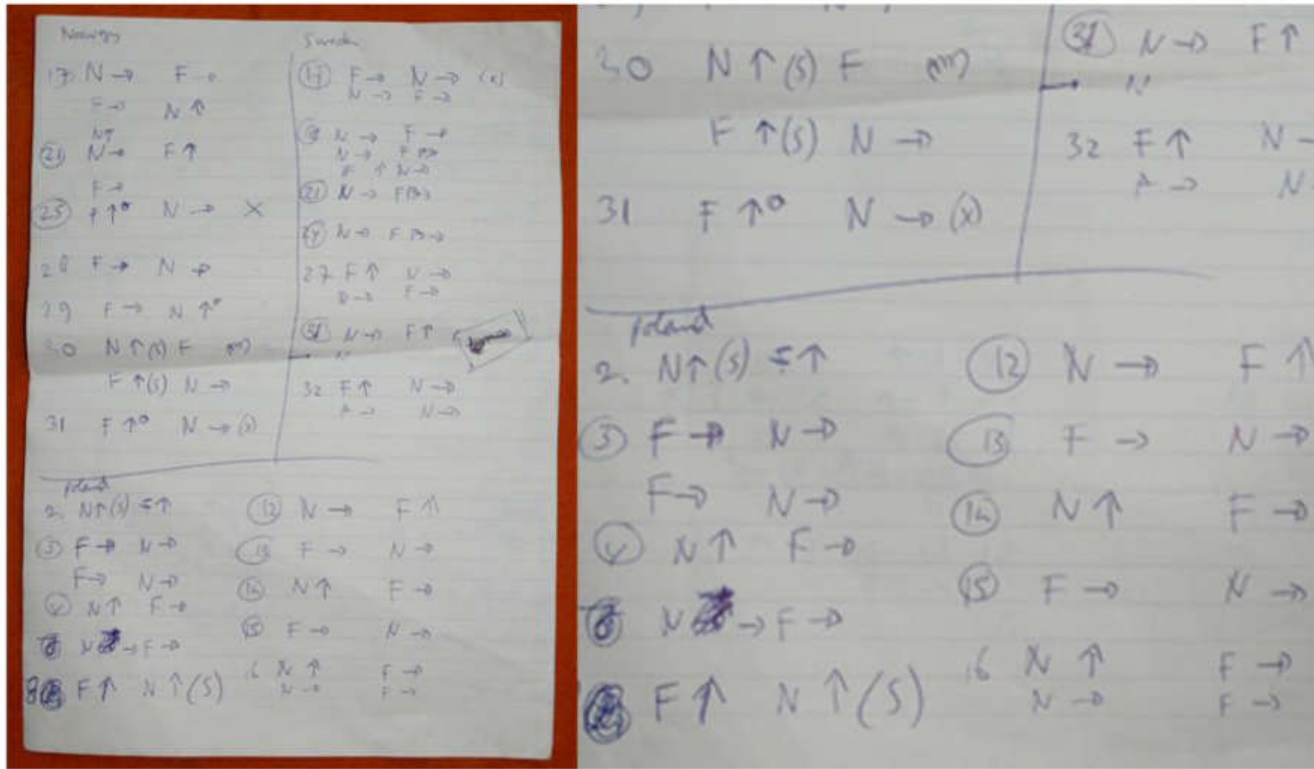 Norway
17) N → F →
F → N ↑
N↑
(21) N → F ↑
F →
(25) F ↑° N → X
28 F → N →
29 F → N ↑°
30 N ↑ (S) F (m)
F ↑ (S) N →
31 F ↑° N → (x)
Sweden
(17) F → N → (x)
N → F →
N → F →
N →
F ↑ N →
(21) N → F
N → F
27 F ↑ N →
F →
(31) N → F ↑
N
32 F ↑ N →
N →
Poland
2. N ↑ (S) F ↑
(3) F → N →
F → N →
(4) N ↑ F →
N → F →
8 F ↑ N ↑ (S)
(12) N → F ↑
(13) F → N →
(14) N ↑ F →
(15) F → N →
16 N ↑ F →
N → F →
30 N ↑ (S) F (m)
F ↑ (S) N →
31 F ↑° N → (x)
(31) N → F ↑
N
32 F ↑ N
N
Poland
2. N ↑ (S) F ↑
(3) F → N →
F → N →
(4) N ↑ F →
N → F →
F ↑ N ↑ (S)
(12) N → F ↑
(13) F → N →
(14) N ↑ F →
(15) F → N →
16 N ↑ F →
N → F →